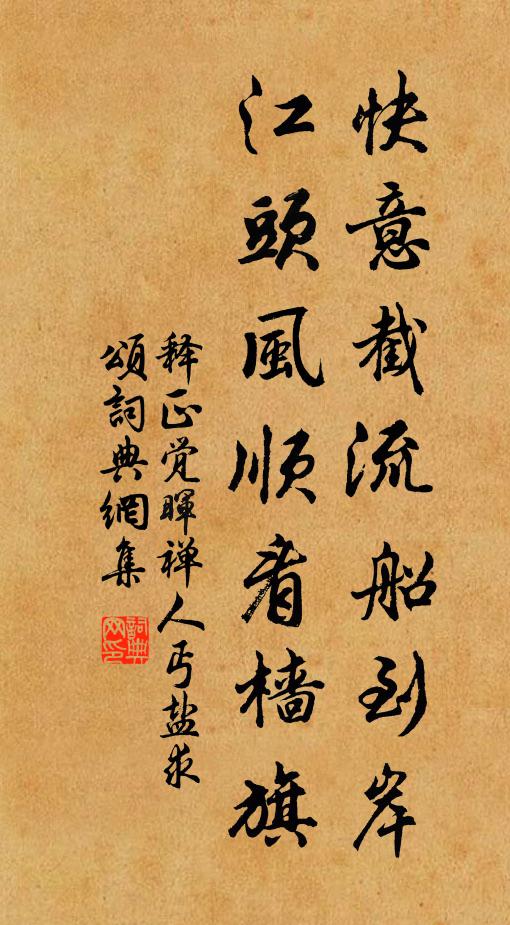 快意截流船到岸
江頭風順看檣旗
释正觉暉禅人丐盐求
頌詞典網集
詞典网印